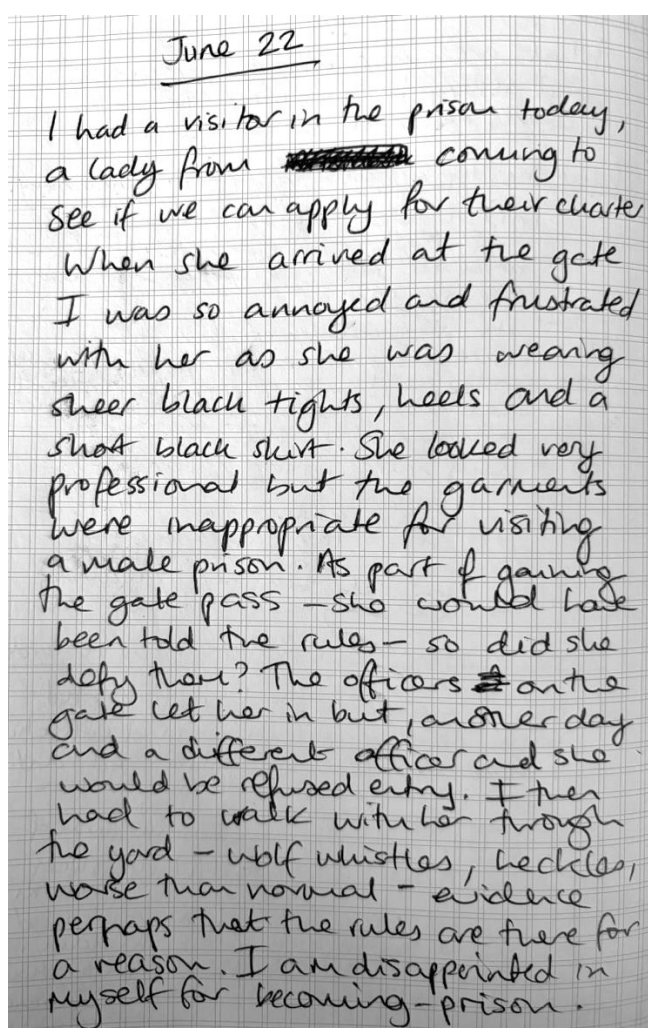 June 22
I had a visitor in the prison today,
a lady from coming to
see if we can apply for their charter
When she arrived at the gate
I was so annoyed and frustrated
with her as she was wearing
sheer black tights, heels and a
short black skirt. She looked very
professional but the garments
were inappropriate for visiting
a male prison. As part of gaining
the gate pass – she would have
been told the rules – so did she
defy them? The officers on the
gate let her in but, another day
and a different officer and she
would be refused entry. I then
had to walk with her through
the yard – wolf whistles, heckles,
worse than normal – evidence
perhaps that the rules are there for
a reason. I am disappointed in
myself for becoming-prison.